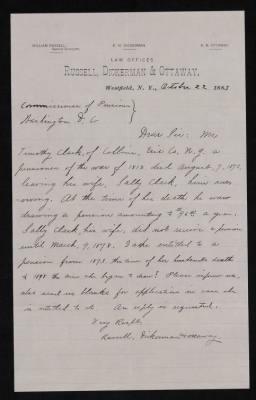 WILLIAM RUSSELL,
F. W. DICKERMAN
A. B. OTTAWAY
LAW OFFICES
RUSSELL, DICKERMAN & OTTAWAY,
Westfield, N. Y., October 22 1883
Commissioner of Pensions
Washington D. C.
Dear Sir: Mr
Timothy Clark, of Collins, Erie Co. N.Y. a
pensioner of the war of 1812 died August, 7, 1872,
leaving his wife, Sally Clark, him
At the time of his death he was
drawing a pension amounting to $96 a year.
Sally Clark, his wife, did not receive a pension
until March, 9, 1878. Is she entitled to a
pension from 187, the time of her husbands death
to 1878 the time she began to draw? Please inform us,
also send us blanks for application in case she
is entitled to do An reply is requested.
Very Respfly.
Russell, Dickerman & Ottaway